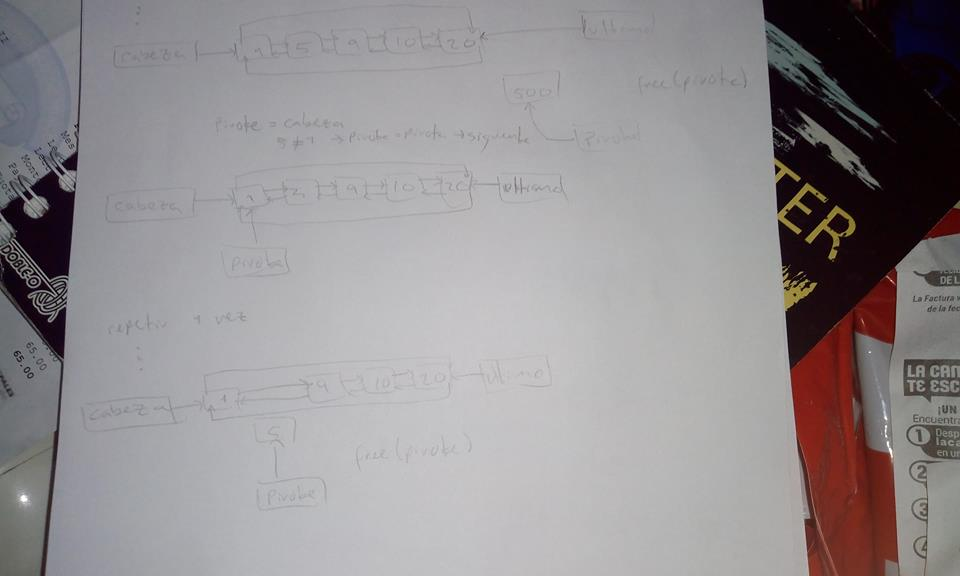 cabeza 1 5 9 10 20 ultimo
500
free(pivote)
pivote = cabeza
pivote
5 ≠ 1 → pivote = pivote → siguiente
cabeza 1 5 9 10 20 ultimo
pivote
repetir 1 vez
cabeza 1 9 10 20 ultimo
5
free(pivote)
pivote
TER
DOBLEGO
65.00
65.00
La Factura
de la fec
LA CAM
TE ESC
¡UN
Encuentra
1 Desp
laca
en un
2
3
4